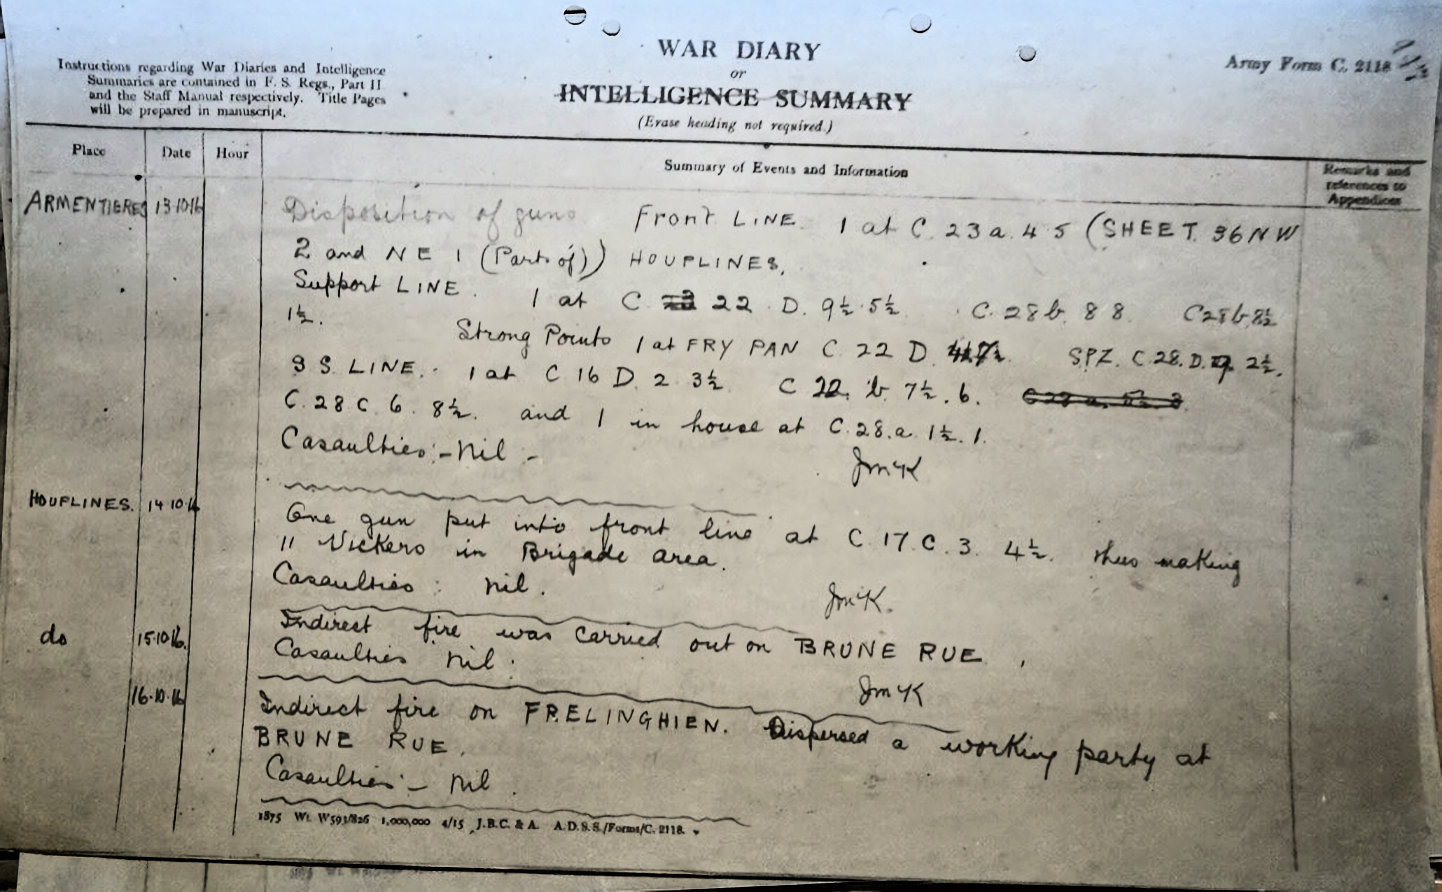 Instructions regarding War Diaries and Intelligence
Summaries are contained in F. S. Regs., Part II
and the Staff Manual respectively. Title Pages
will be prepared in manuscript.
WAR DIARY
or
INTELLIGENCE SUMMARY
(Erase heading not required.)
Army Form C. 2118
Place Date Hour Summary of Events and Information Remarks and references to Appendices
ARMENTIERES 13 10 16 Disposition of guns Front LINE 1 at C. 23 a. 4 5 (SHEET 36 NW
2 and NE 1 (Parts of)) HOUPLINES.
Support LINE. 1 at C. 22 D. 9½ 5½. C. 28 b. 8 8. C 28 b 8½
1½. Strong Points 1 at FRY PAN C. 22 D. SPZ. C. 28. D. 2½.
S S. LINE. 1 at C 16 D. 2 3½ C 22. b. 7½. 6.
C. 28 C 6. 8½. and 1 in house at C. 28. a. 1½. 1.
Casaulties:- Nil -
JMcK
HOUPLINES. 14 10 16 One gun put into front line at C 17. C. 3. 4½. thus making
11 Vickers in Brigade area.
Casaulties: Nil.
JMcK.
do 15 10 16. Indirect fire was carried out on BRUNE RUE.
Casaulties Nil.
JMcK
16. 10. 16 Indirect fire on FRELINGHIEN. Dispersed a working party at
BRUNE RUE.
Casaulties - Nil.
1875 Wt. W593/826 1,000,000 4/15 J.B.C. & A. A.D.S.S./Forms/C. 2118.